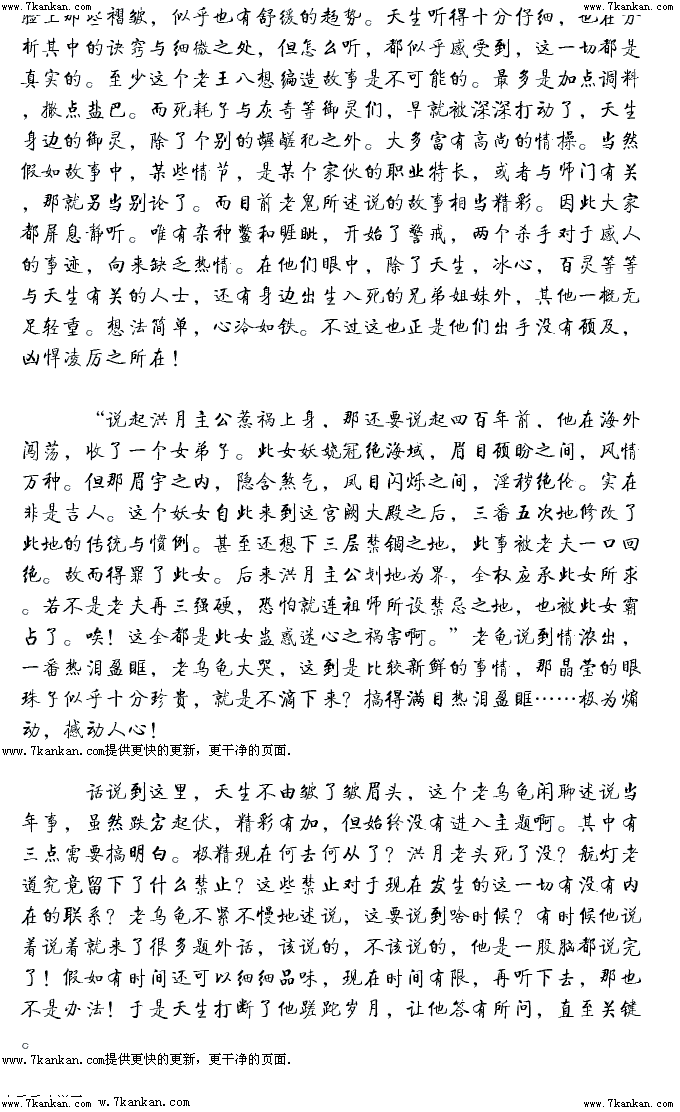 www.7kankan.com www.7kankan.com www.7kankan.com
脸上那些褶皱，似乎也有舒缓的趋势。天生听得十分仔细，也在分
析其中的诀窍与细微之处，但怎么听，都似乎感受到，这一切都是
真实的。至少这个老王八想编造故事是不可能的。最多是加点调料
，撒点盐巴。而死耗子与灰奇等御灵们，早就被深深打动了，天生
身边的御灵，除了个别的龌龊犯之外。大多富有高尚的情操。当然
假如故事中，某些情节，是某个家伙的职业特长，或者与师门有关
，那就另当别论了。而目前老鬼所述说的故事相当精彩。因此大家
都屏息静听。唯有杂种鳖和睚眦，开始了警戒，两个杀手对于感人
的事迹，向来缺乏热情。在他们眼中，除了天生，冰心，百灵等等
与天生有关的人士，还有身边出生入死的兄弟姐妹外，其他一概无
足轻重。想法简单，心冷如铁。不过这也正是他们出手没有顾及，
凶悍凌厉之所在！
“说起洪月主公惹祸上身，那还要说起四百年前，他在海外
闯荡，收了一个女弟子。此女妖娆冠绝海域，眉目顾盼之间，风情
万种。但那眉宇之内，隐含煞气，凤目闪烁之间，淫秽绝伦。实在
非是吉人。这个妖女自此来到这宫阙大殿之后，三番五次地修改了
此地的传统与惯例。甚至还想下三层禁锢之地，此事被老夫一口回
绝。故而得罪了此女。后来洪月主公划地为界，全权应承此女所求
。若不是老夫再三强硬，恐怕就连祖师所设禁忌之地，也被此女霸
占了。唉！这全都是此女蛊惑迷心之祸害啊。”老龟说到情浓出，
一番热泪盈眶，老乌龟大哭，这到是比较新鲜的事情，那晶莹的眼
珠子似乎十分珍贵，就是不滴下来？搞得满目热泪盈眶……极为煽
动，撼动人心！
www.7kankan.com提供更快的更新，更干净的页面.
话说到这里，天生不由皱了皱眉头，这个老乌龟闲聊述说当
年事，虽然跌宕起伏，精彩有加，但始终没有进入主题啊。其中有
三点需要搞明白。极精现在何去何从了？洪月老头死了没？航灯老
道究竟留下了什么禁止？这些禁止对于现在发生的这一切有没有内
在的联系？老乌龟不紧不慢地述说，这要说到啥时候？有时候他说
着说着就来了很多题外话，该说的，不该说的，他是一股脑都说完
了！假如有时间还可以细细品味，现在时间有限，再听下去，那也
不是办法！于是天生打断了他蹉跎岁月，让他答有所问，直至关键
。
www.7kankan.com提供更快的更新，更干净的页面.
w.7kankan.com www.7kankan.com